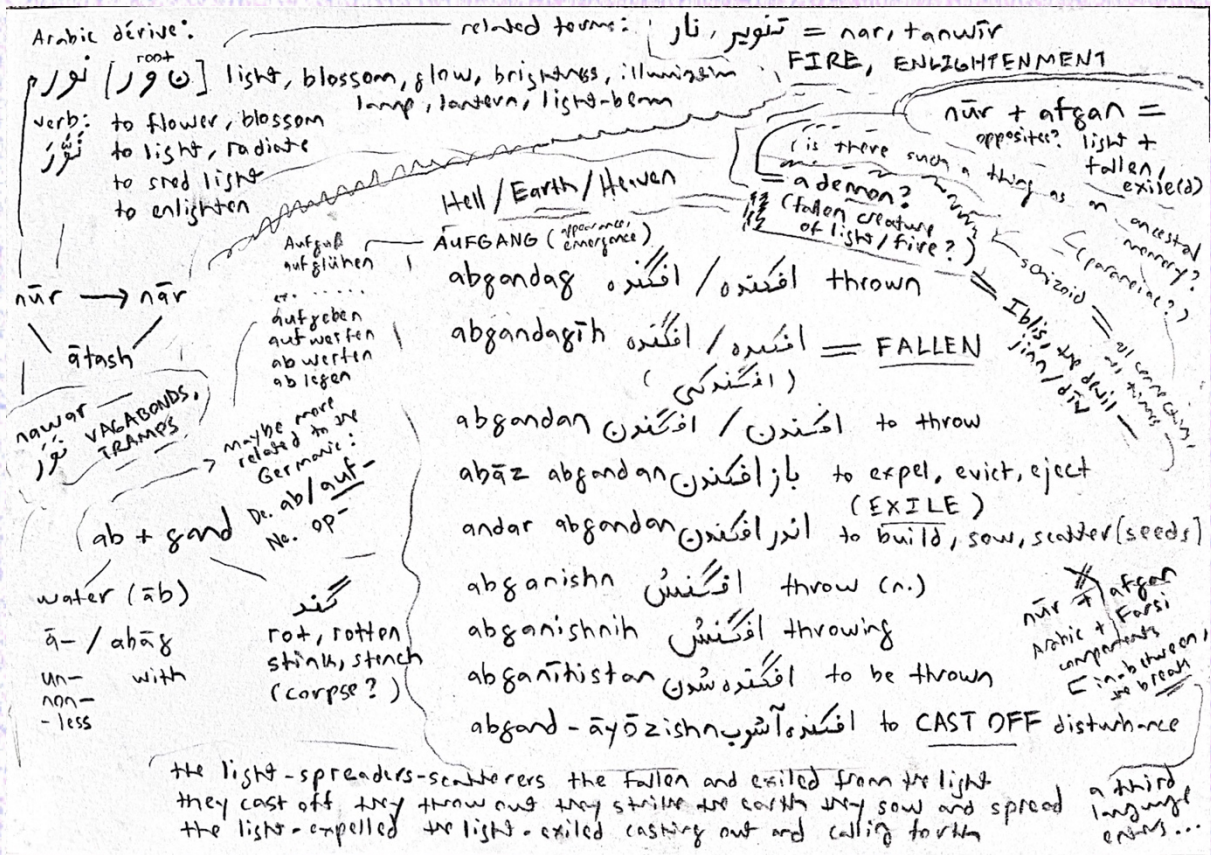 Arabic dérive:
related terms: تنویر, نار = nar, tanwīr
FIRE, ENLIGHTENMENT
root
نور [ن و ر] light, blossom, glow, brightness,
lamp, lantern, light-beam
verb: to flower, blossom
نَوَّرَ to light, radiate
to shed light
to enlighten
nūr → nār
ātash
nawar
نَوَر
VAGABONDS,
TRAMPS
nūr + afgan =
opposites? light +
fallen,
exile(d)
(is there such a thing as an ancestral
memory?
= a demon?
(fallen creature
of light/fire?)
= Iblis, the devil —
jinn / dīv
Hell / Earth / Heaven
AUFGANG (appearance,
emergence)
Aufguß
aufglühen
aufgeben
aufwerten
abwerten
ablegen
maybe more
related to the
Germanic:
De. ab/auf-
Ne. op-
ab + gand
water (āb)
ā- / abāg
un- with
non-
-less
گند
rot, rotten
stink, stench
(corpse?)
abgandag افگنده / افکنده thrown
abgandagīh افگنده / افکنده = FALLEN
(افگندگی)
abgandan افگندن / افکندن to throw
abāz abgandan باز افکندن to expel, evict, eject
(EXILE)
andar abgandan اندر افکندن to build, sow, scatter [seeds]
abganishn افگنش throw (n.)
abganishnih افگنش throwing
abganīhistan افگنده شدن to be thrown
abgand-āyōzishn افکنده آشوب to CAST OFF disturbance
nūr + afgan
Arabic + Farsi
components
in-between,
the break
the light-spreaders-scatterers the fallen and exiled from the light
they cast off they throw out they strike the earth they sow and spread
the light-expelled the light-exiled casting out and calling forth
a third
language
enters...